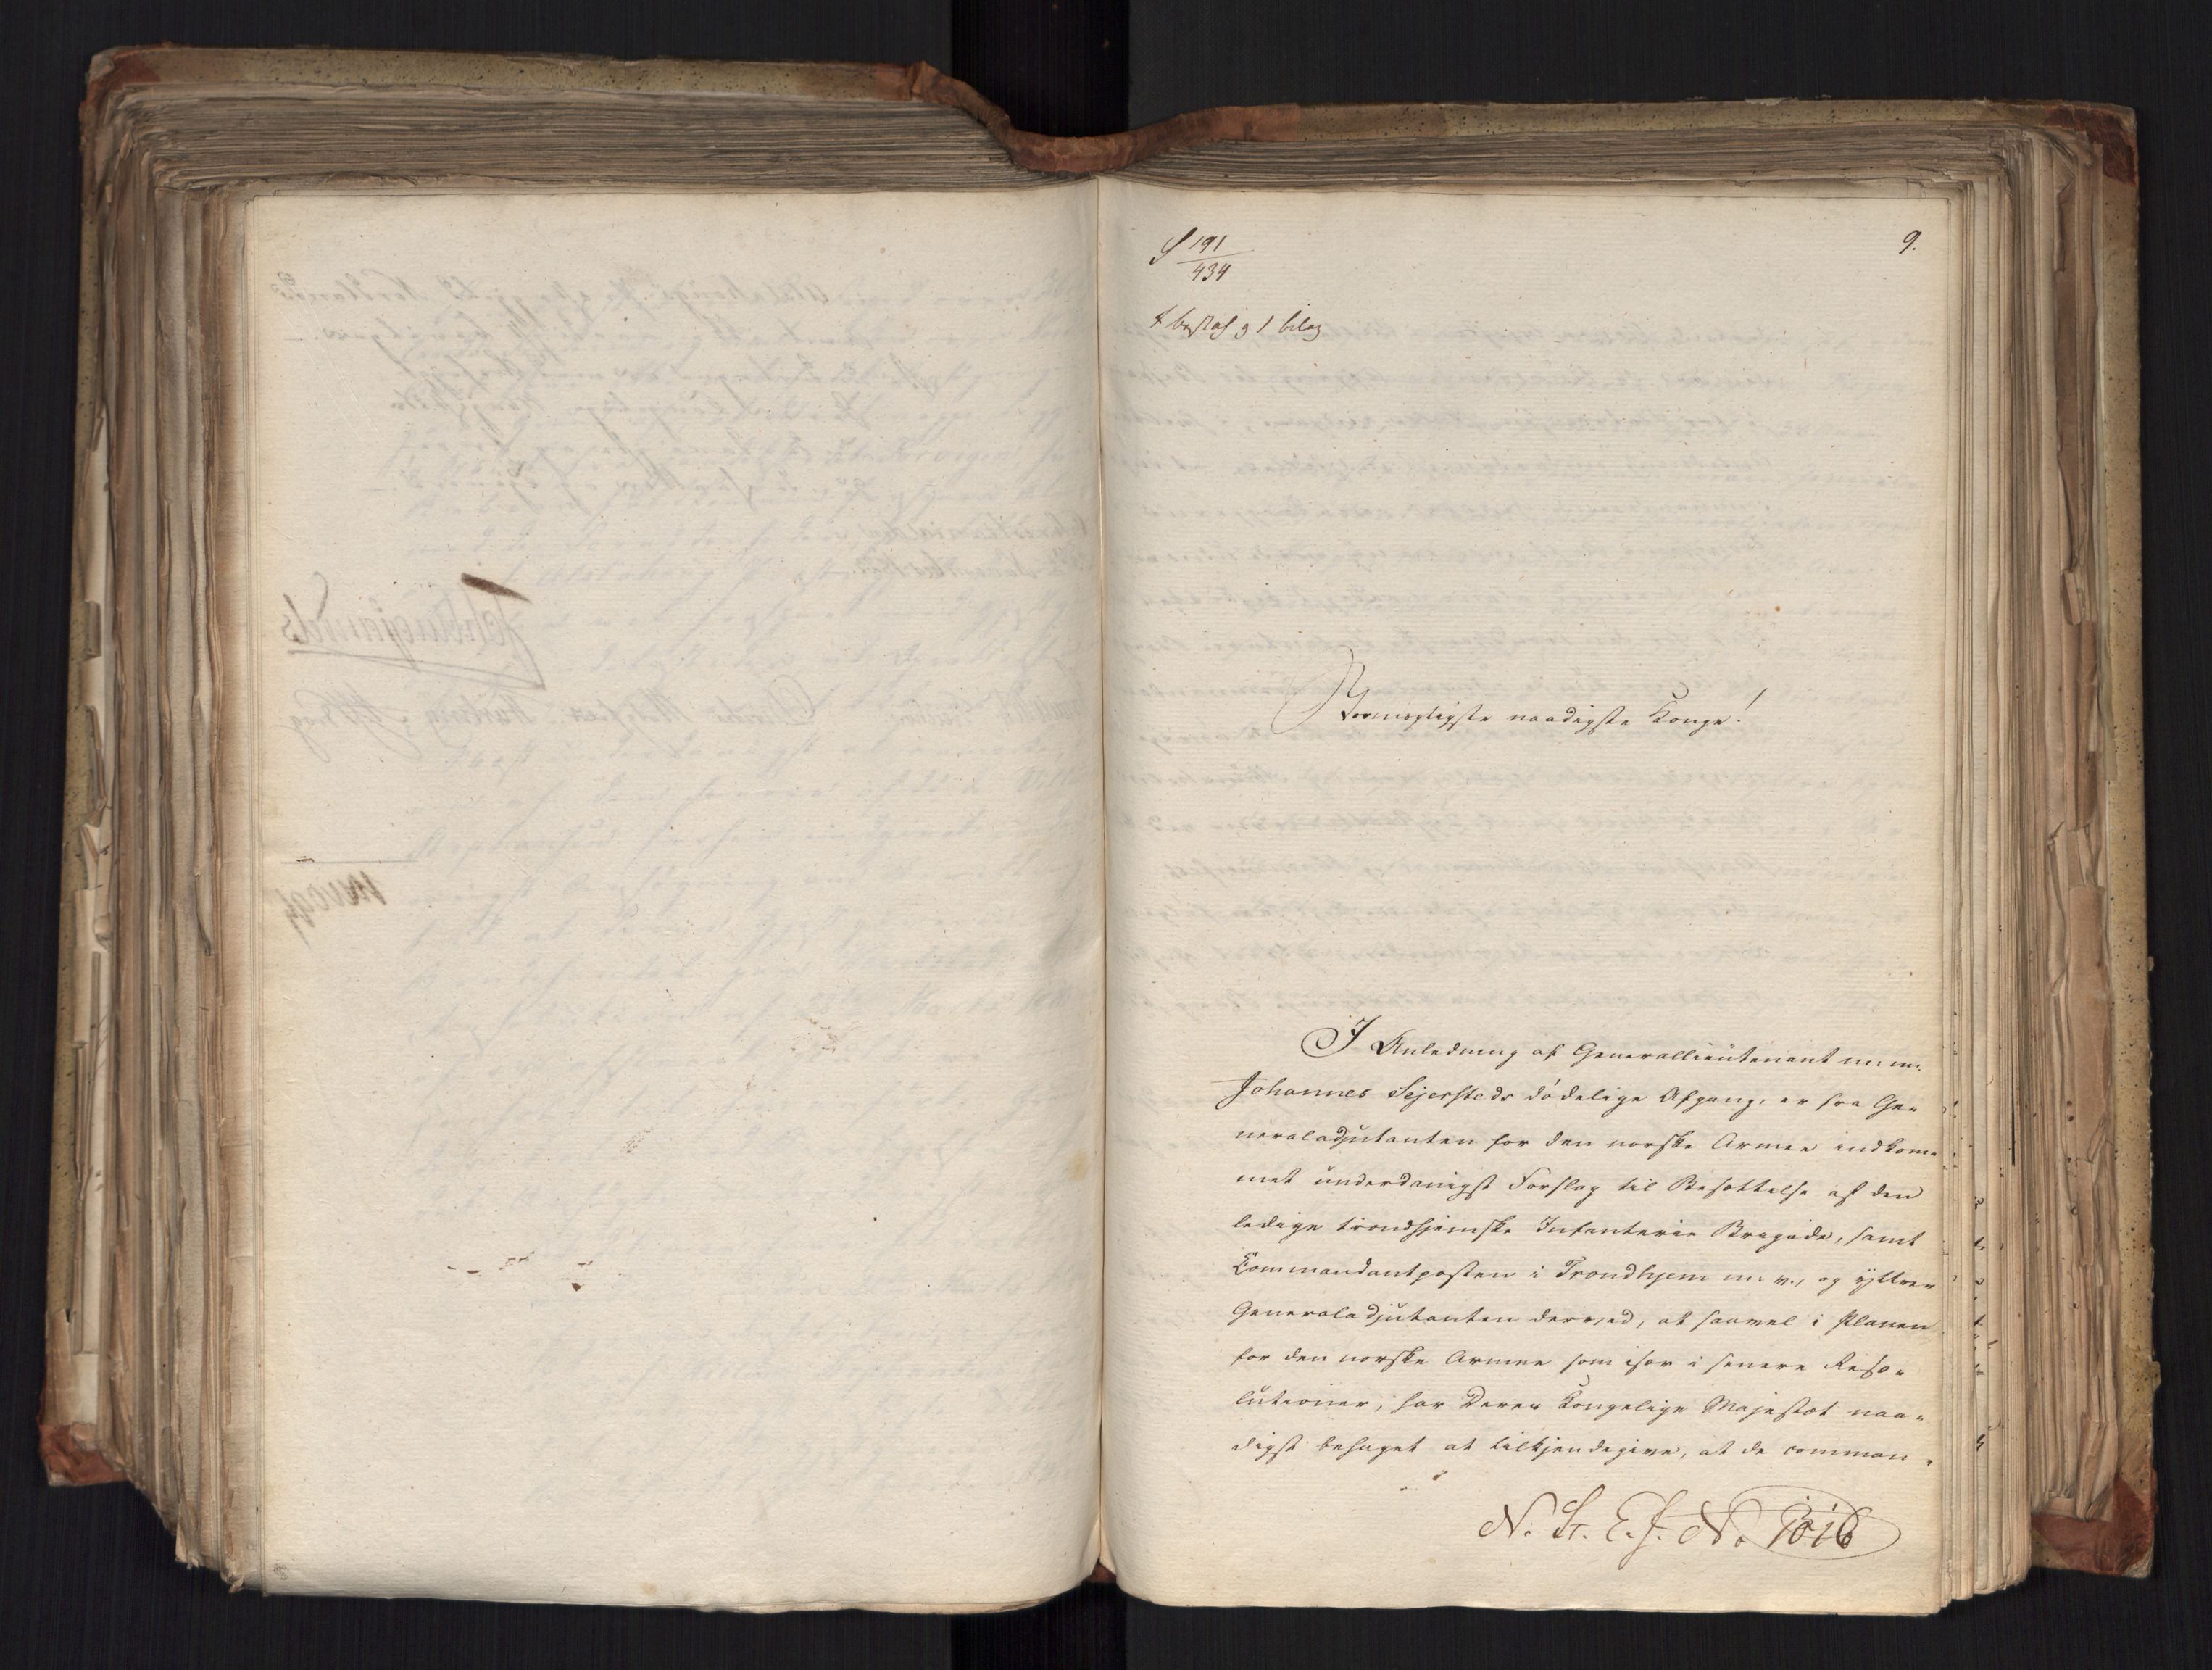 S 191
434
9.
Stormægtigste naadigste Konge!
I Anledning af Generallieutenant m: m:
Johannes Sejersteds dødelige Afgang, er fra Ge-
neraladjutanten for den norske Armee indkom-
met underdanigst Forslag til Besættelse af den
ledige trondhjemske Infanterie Brigade, samt
Commandantposten i Trondhjem m: v:, og yttrer
Generaladjutanten derved, at saavel i Planen
for den norske Armee som især i senere Reso-
lutioner, har Deres Kongelige Majestæt naa-
digst behaget at tilkjendegive, at de comman-
N. St. E. J. No 1016